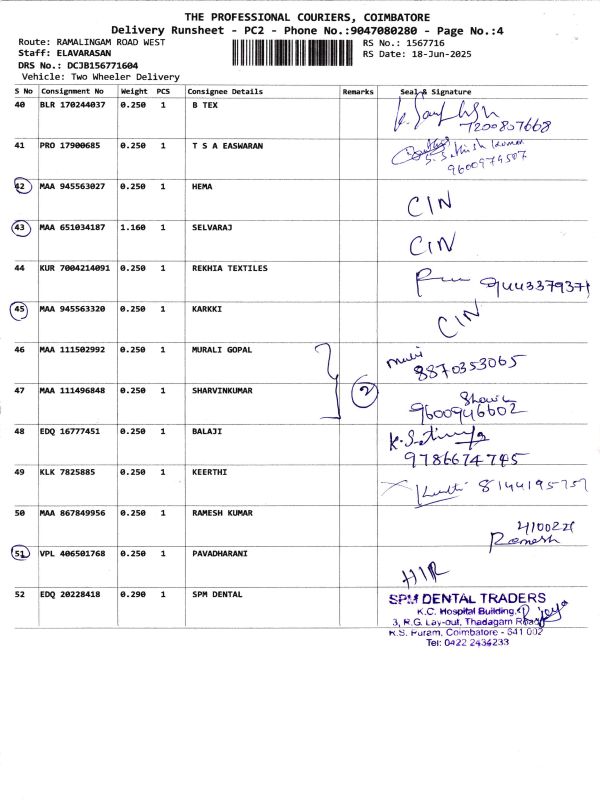 THE PROFESSIONAL COURIERS, COIMBATORE
Delivery Runsheet - PC2 - Phone No.:9047080280 - Page No.:4
Route: RAMALINGAM ROAD WEST RS No.: 1567716
Staff: ELAVARASAN RS Date: 18-Jun-2025
DRS No.: DCJB156771604
Vehicle: Two Wheeler Delivery
S No Consignment No Weight PCS Consignee Details Remarks Seal & Signature
40 BLR 170244037 0.250 1 B TEX
7200857668
41 PRO 17900685 0.250 1 T S A EASWARAN
S. Sathish kumar
9600974507
42 MAA 945563027 0.250 1 HEMA CIN
43 MAA 651034187 1.160 1 SELVARAJ CIN
44 KUR 7004214091 0.250 1 REKHIA TEXTILES 9443379371
45 MAA 945563320 0.250 1 KARKKI CIN
46 MAA 111502992 0.250 1 MURALI GOPAL
8870353065
2
47 MAA 111496848 0.250 1 SHARVINKUMAR
9600946602
48 EDQ 16777451 0.250 1 BALAJI
9786674745
49 KLK 7825885 0.250 1 KEERTHI 8144195757
50 MAA 867849956 0.250 1 RAMESH KUMAR
Ramesh
51 VPL 406501768 0.250 1 PAVADHARANI
52 EDQ 20228418 0.290 1 SPM DENTAL
SPM DENTAL TRADERS
K.C. Hospital Building,
3, R.G. Lay-out, Thadagam Road
R.S. Puram, Coimbatore - 641 002
Tel: 0422 2434233